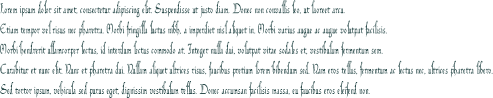 Lorem ipsum dolor sit amet, consectetur adipiscing elit. Suspendisse at justo diam. Donec non convallis leo, at laoreet arcu.
Etiam tempor vel risus nec pharetra. Morbi fringilla luctus nibh, a imperdiet nisl aliquet in. Morbi varius augue ac augue volutpat facilisis.
Morbi hendrerit ullamcorper lectus, id interdum lectus commodo at. Integer nulla dui, volutpat vitae sodales et, vestibulum fermentum sem.
Curabitur et nunc elit. Nunc et pharetra dui. Nullam aliquet ultrices risus, faucibus pretium lorem bibendum sed. Nam eros tellus, fermentum ac lectus nec, ultrices pharetra libero.
Sed tortor ipsum, vehicula sed purus eget, dignissim vestibulum tellus. Donec accumsan facilisis massa, eu faucibus eros eleifend non.